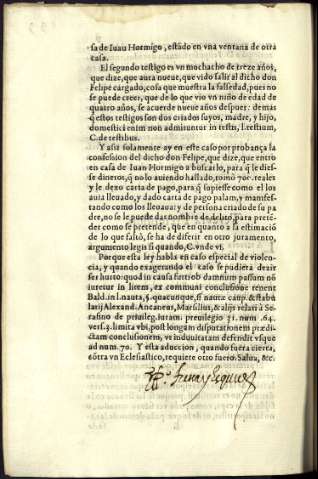 sa de Iuau Hormigo, estãdo en vna ventana de otra
casa.
El segundo testigo es vn mochacho de treze años,
que dize, que aura nueue, que vido salir al dicho don
Felipe cargado, cosa que muestra la falsedad, pues no
se puede creer, que de lo que vio vn niño de edad de
quatro años, se acuerde nueue años despues: demas
q̃ estos testigos son dos criados suyos, madre, y hijo,
domestici enim non admituntur in testis, l. testium,
C. de testibus.
Y assi solamente ay en este caso por probança la
confession del dicho don Felipe, que dize, que entro
en casa de Iuan Hormigo a buscarlo, para q̃ le diesse
dineros, q̃ no lo auiendo hallado, tomò 70c. reales
y le dexo carta de pago, para q̃ supiesse como el los
auia lleuado, y dado carta de pago palam, y manifes-
rando como los lleuaua; y de persona criado de su pa
dre, no se le puede dar nombre de delito, para prete-
der como se pretende, que en quanto a la estimaciõ
de lo que faltò, se ha de diferir en otro juramento,
argumento legis si quando, C. vnde vi.
Porque esta ley habla en caso especial de violen-
cia, y quando exagerando el caso se pudiera dezir
ser hurto: quod in causa furti ob damnum passum nõ
iuretur in litem, ex communi conclusione tenent
Bald. in l. nauta, §. quacunque, ff. nautæ caup. & stabu
larij Alexand. Ancaneus, Marsilius, & alijs relati à Se-
rafino de priuileg. iuram. preuilegio 31. num. 64.
vers. 3. limita vbi, post longam disputationem præ di-
ctam conclusionem, vt indubitatam defendit vsque
ad num. 70. Y esta aduccion, quando fuera cierta,
cõtra vn Eclesiastico, requiere otro fuero. Salua, &c.